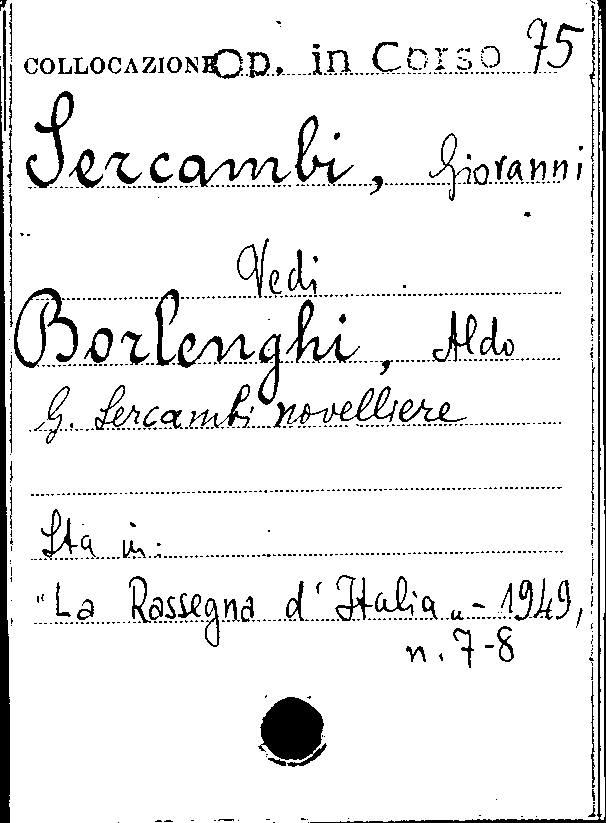 COLLOCAZIONE Op. in Corso 75
Sercambi, Giovanni
Vedi
Borlenghi, Aldo
G. Sercambi novelliere
Sta in:
"La Rassegna d'Italia„ - 1949,
n. 7-8